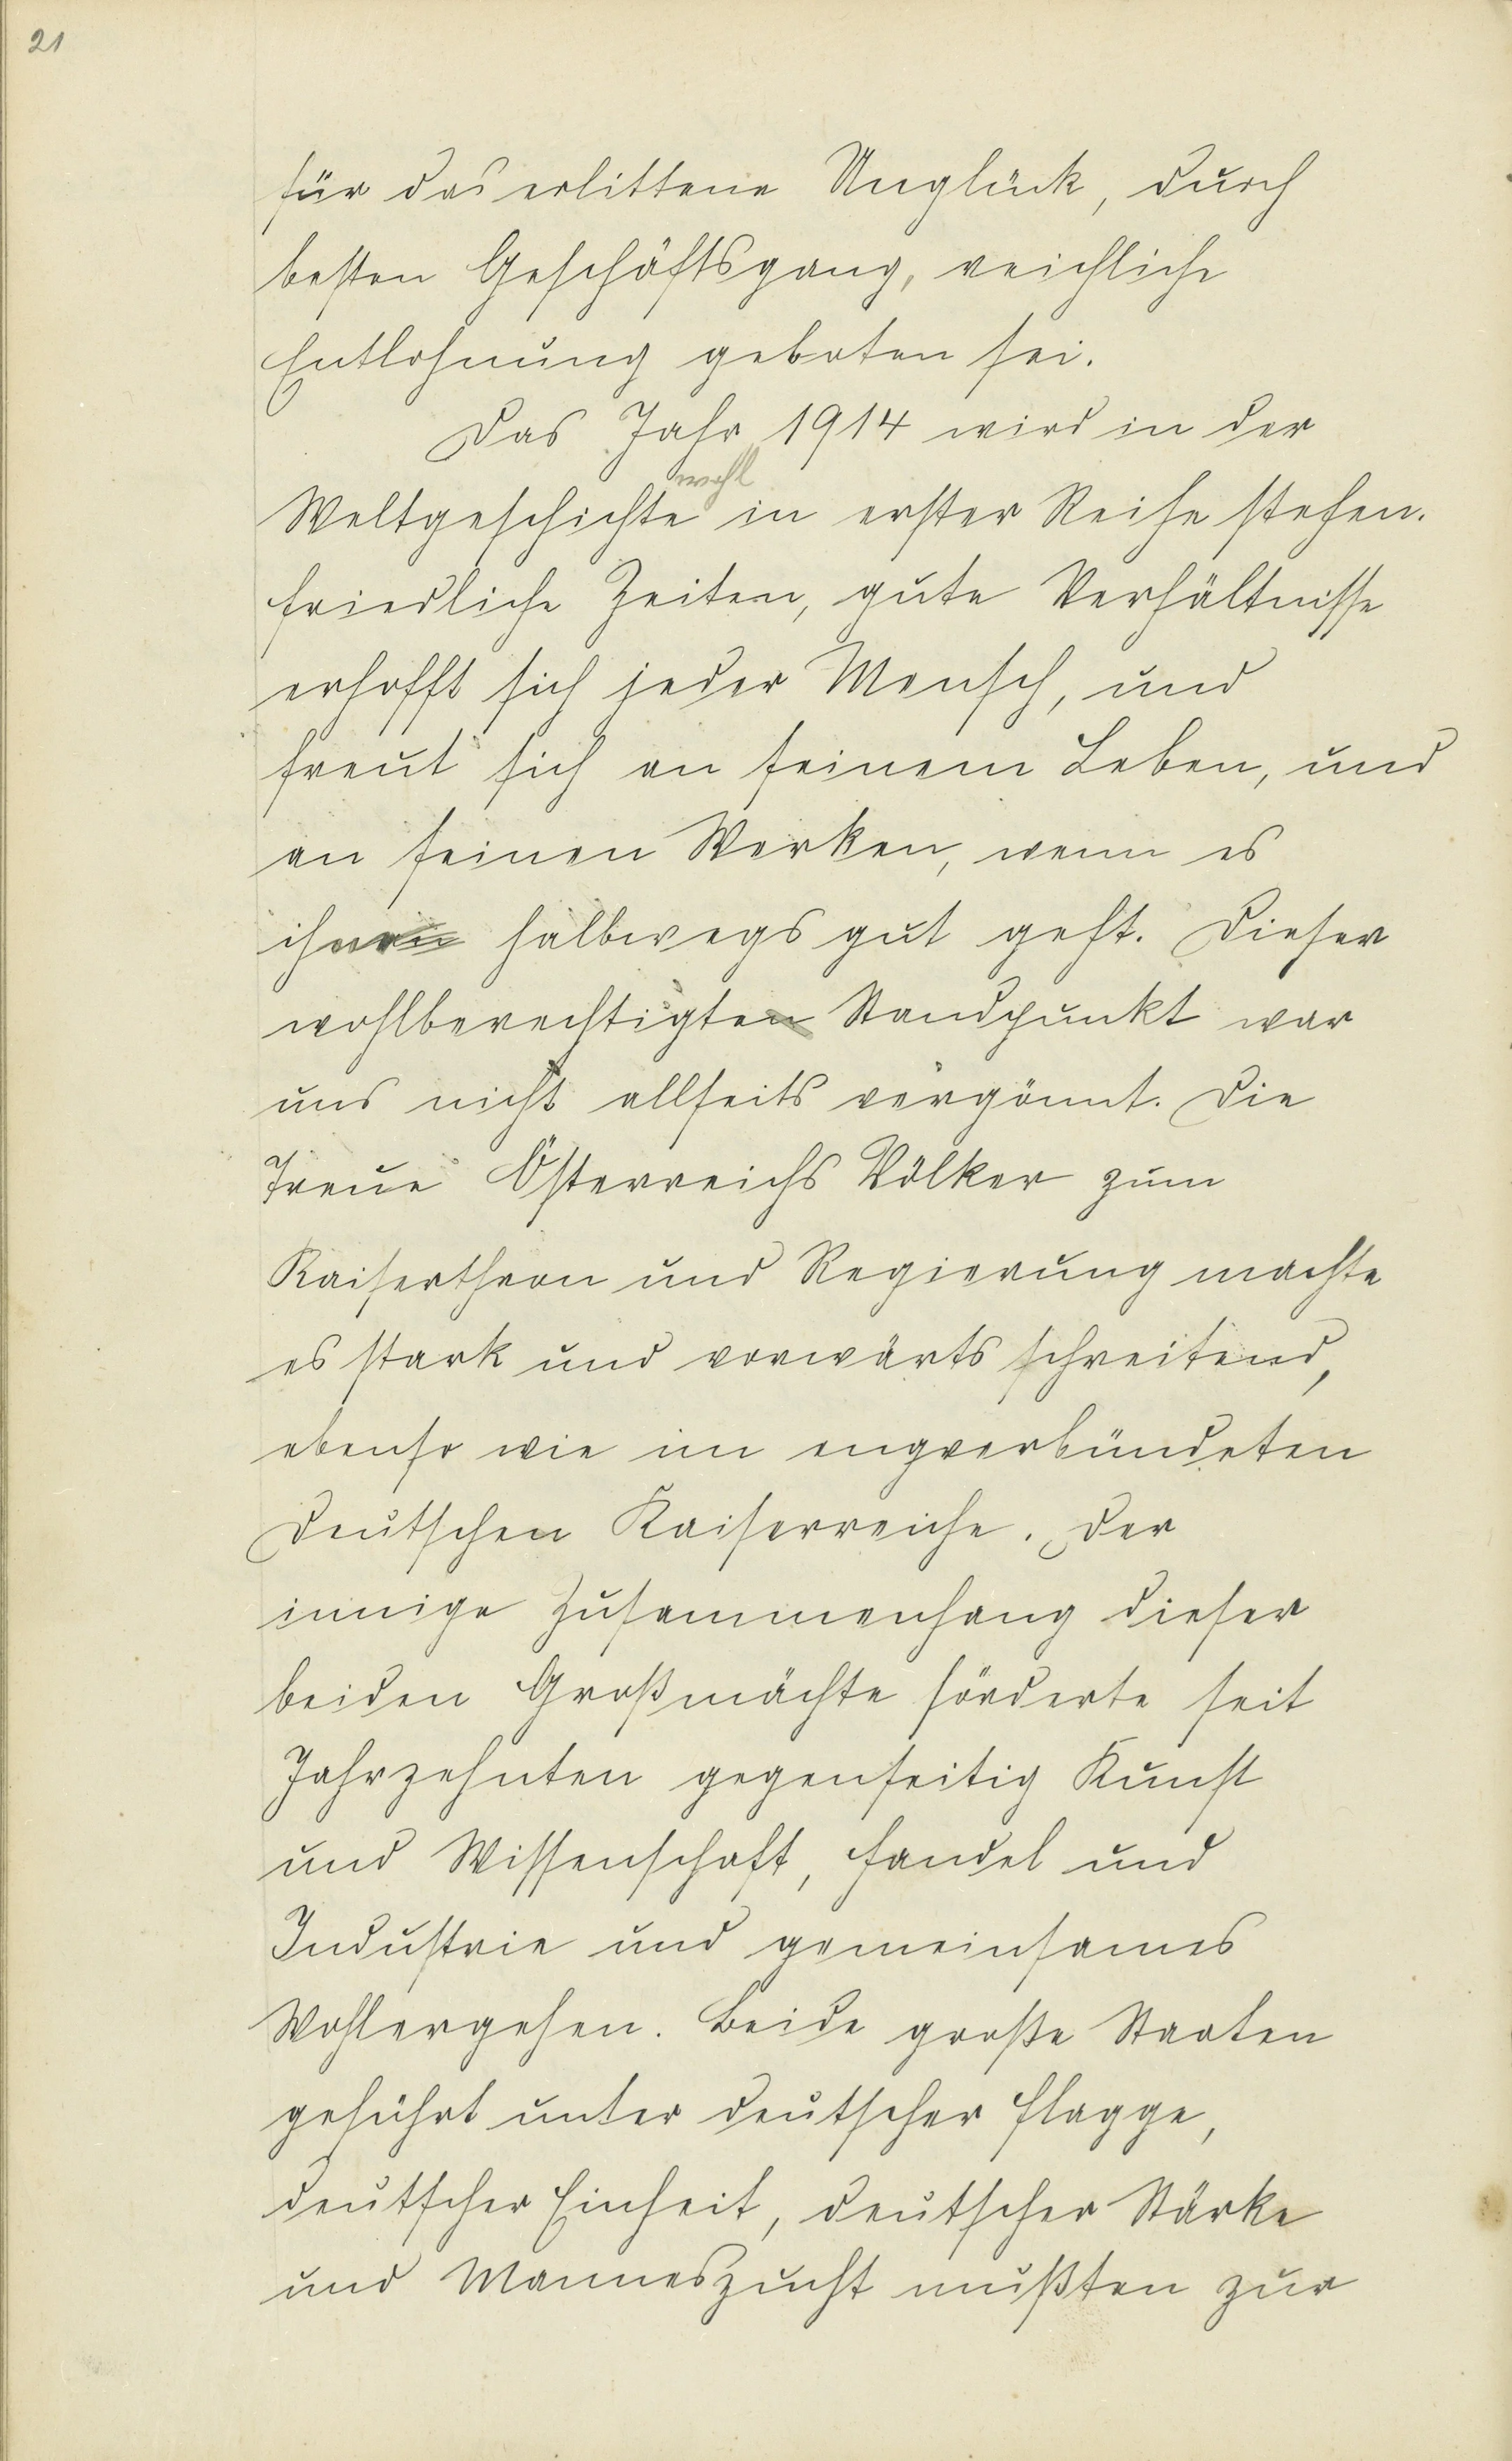 21
für das erlittene Unglück, durch
besten Geschäftsgang, reichliche
Entlohnung geboten sei.
Das Jahr 1914 wird in der
wohl
Weltgeschichte in erster Reihe stehen.
Friedliche Zeiten, gute Verhältnisse
erhofft sich jeder Mensch, und
freut sich an seinem Leben, und
an seinen Werken, wenn es
ihm halbwegs gut geht. Dieser
wohlberechtigten Standpunkt war
uns nicht allseits vergönnt. Die
Treue Österreichs Völker zum
Kaiserthron und Regierung machte
es stark und vorwärts schreitend,
ebenso wie im engverbündeten
Deutschen Kaiserreiche. Der
innige Zusammenhang dieser
beiden Großmächte förderte seit
Jahrzehnten gegenseitig Kunst
und Wissenschaft, Handel und
Industrie und gemeinsames
Wohlergehen. Beide große Staaten
geführt unter deutscher Flagge,
deutscher Einheit, deutscher Stärke
und Manneszucht mußten zur